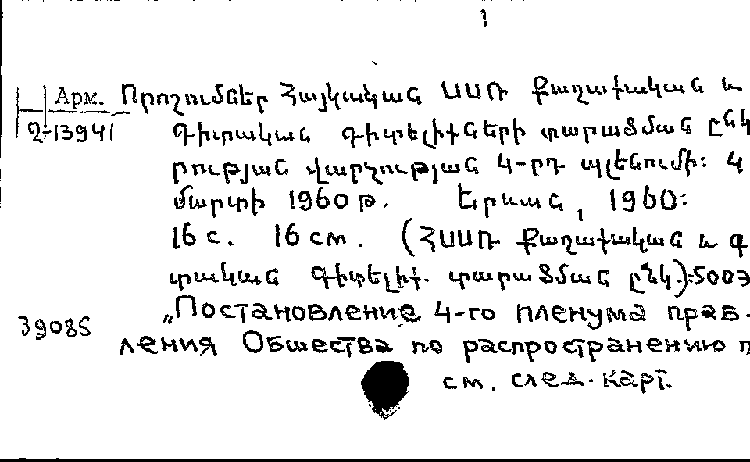 1
Арм. Որոշումներ Հայկական ՍՍՌ Քաղաքական և
2-13941 Գիտական գիտելիքների տարածման ընկ
րության վարչության 4-րդ պլենումի։ 4
մարտի 1960 թ. Երևան, 1960։
16 с. 16 см. (ՀՍՍՌ Քաղաքական և գ
տական գիտելիք. տարածման ընկ.)։500Э
„Постановление 4-го пленума прав-
39085 ления Общества по распространению п
см. след. карт.